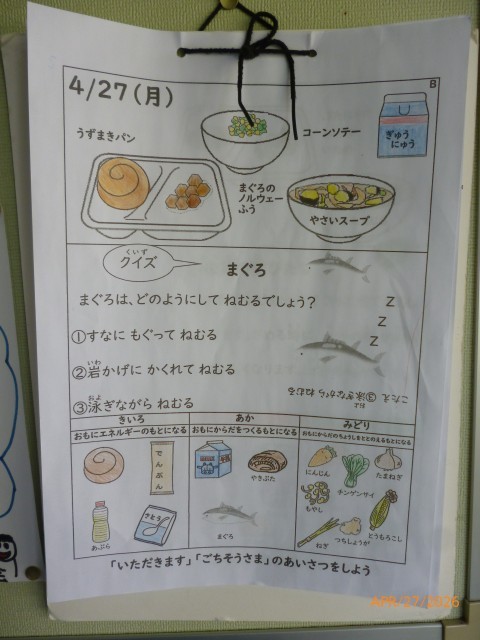 4/27(月)
B
うずまきパン
コーンソテー
ぎゅう
にゅう
まぐろの
ノルウェー
ふう
やさいスープ
くいず
クイズ
まぐろ
まぐろは、どのようにして ねむるでしょう?
Z
Z
Z
①すなに もぐって ねむる
いわ
②岩かげに かくれて ねむる
およ
③泳ぎながら ねむる
こたえ ③泳ぎながら ねむる
およ
きいろ
おもにエネルギーのもとになる
あか
おもにからだをつくるもとになる
みどり
おもにからだのちょうしをととのえるもとになる
でんぷん
やきぶた
にんじん
チンゲンサイ
たまねぎ
もやし
さとう
あぶら
まぐろ
ねぎ
つちしょうが
とうもろこし
「いただきます」「ごちそうさま」のあいさつをしよう
APR/27/2026